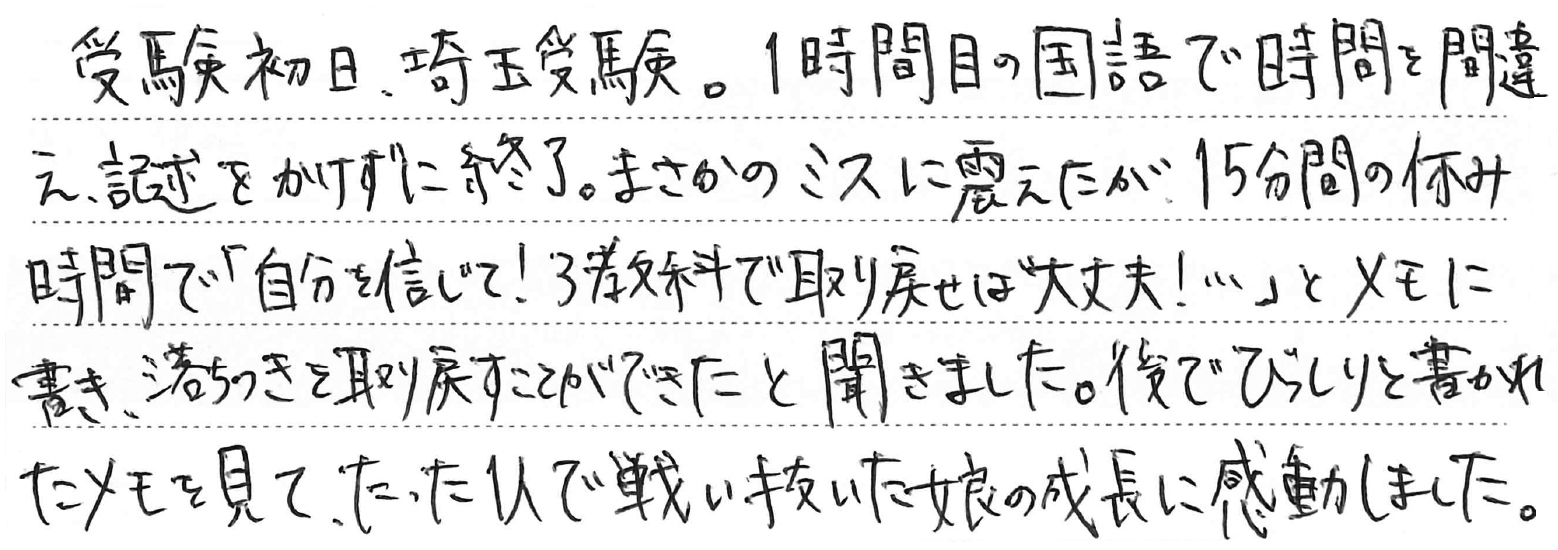 受験初日、埼玉受験。1時間目の国語で時間を間違
え、記述をかけずに終了。まさかのミスに震えたが、15分間の休み
時間で「自分を信じて！3教科で取り戻せば大丈夫！…」とメモに
書き、落ちつきを取り戻すことができたと聞きました。後でびっしりと書かれ
たメモを見て、たった1人で戦い抜いた娘の成長に感動しました。